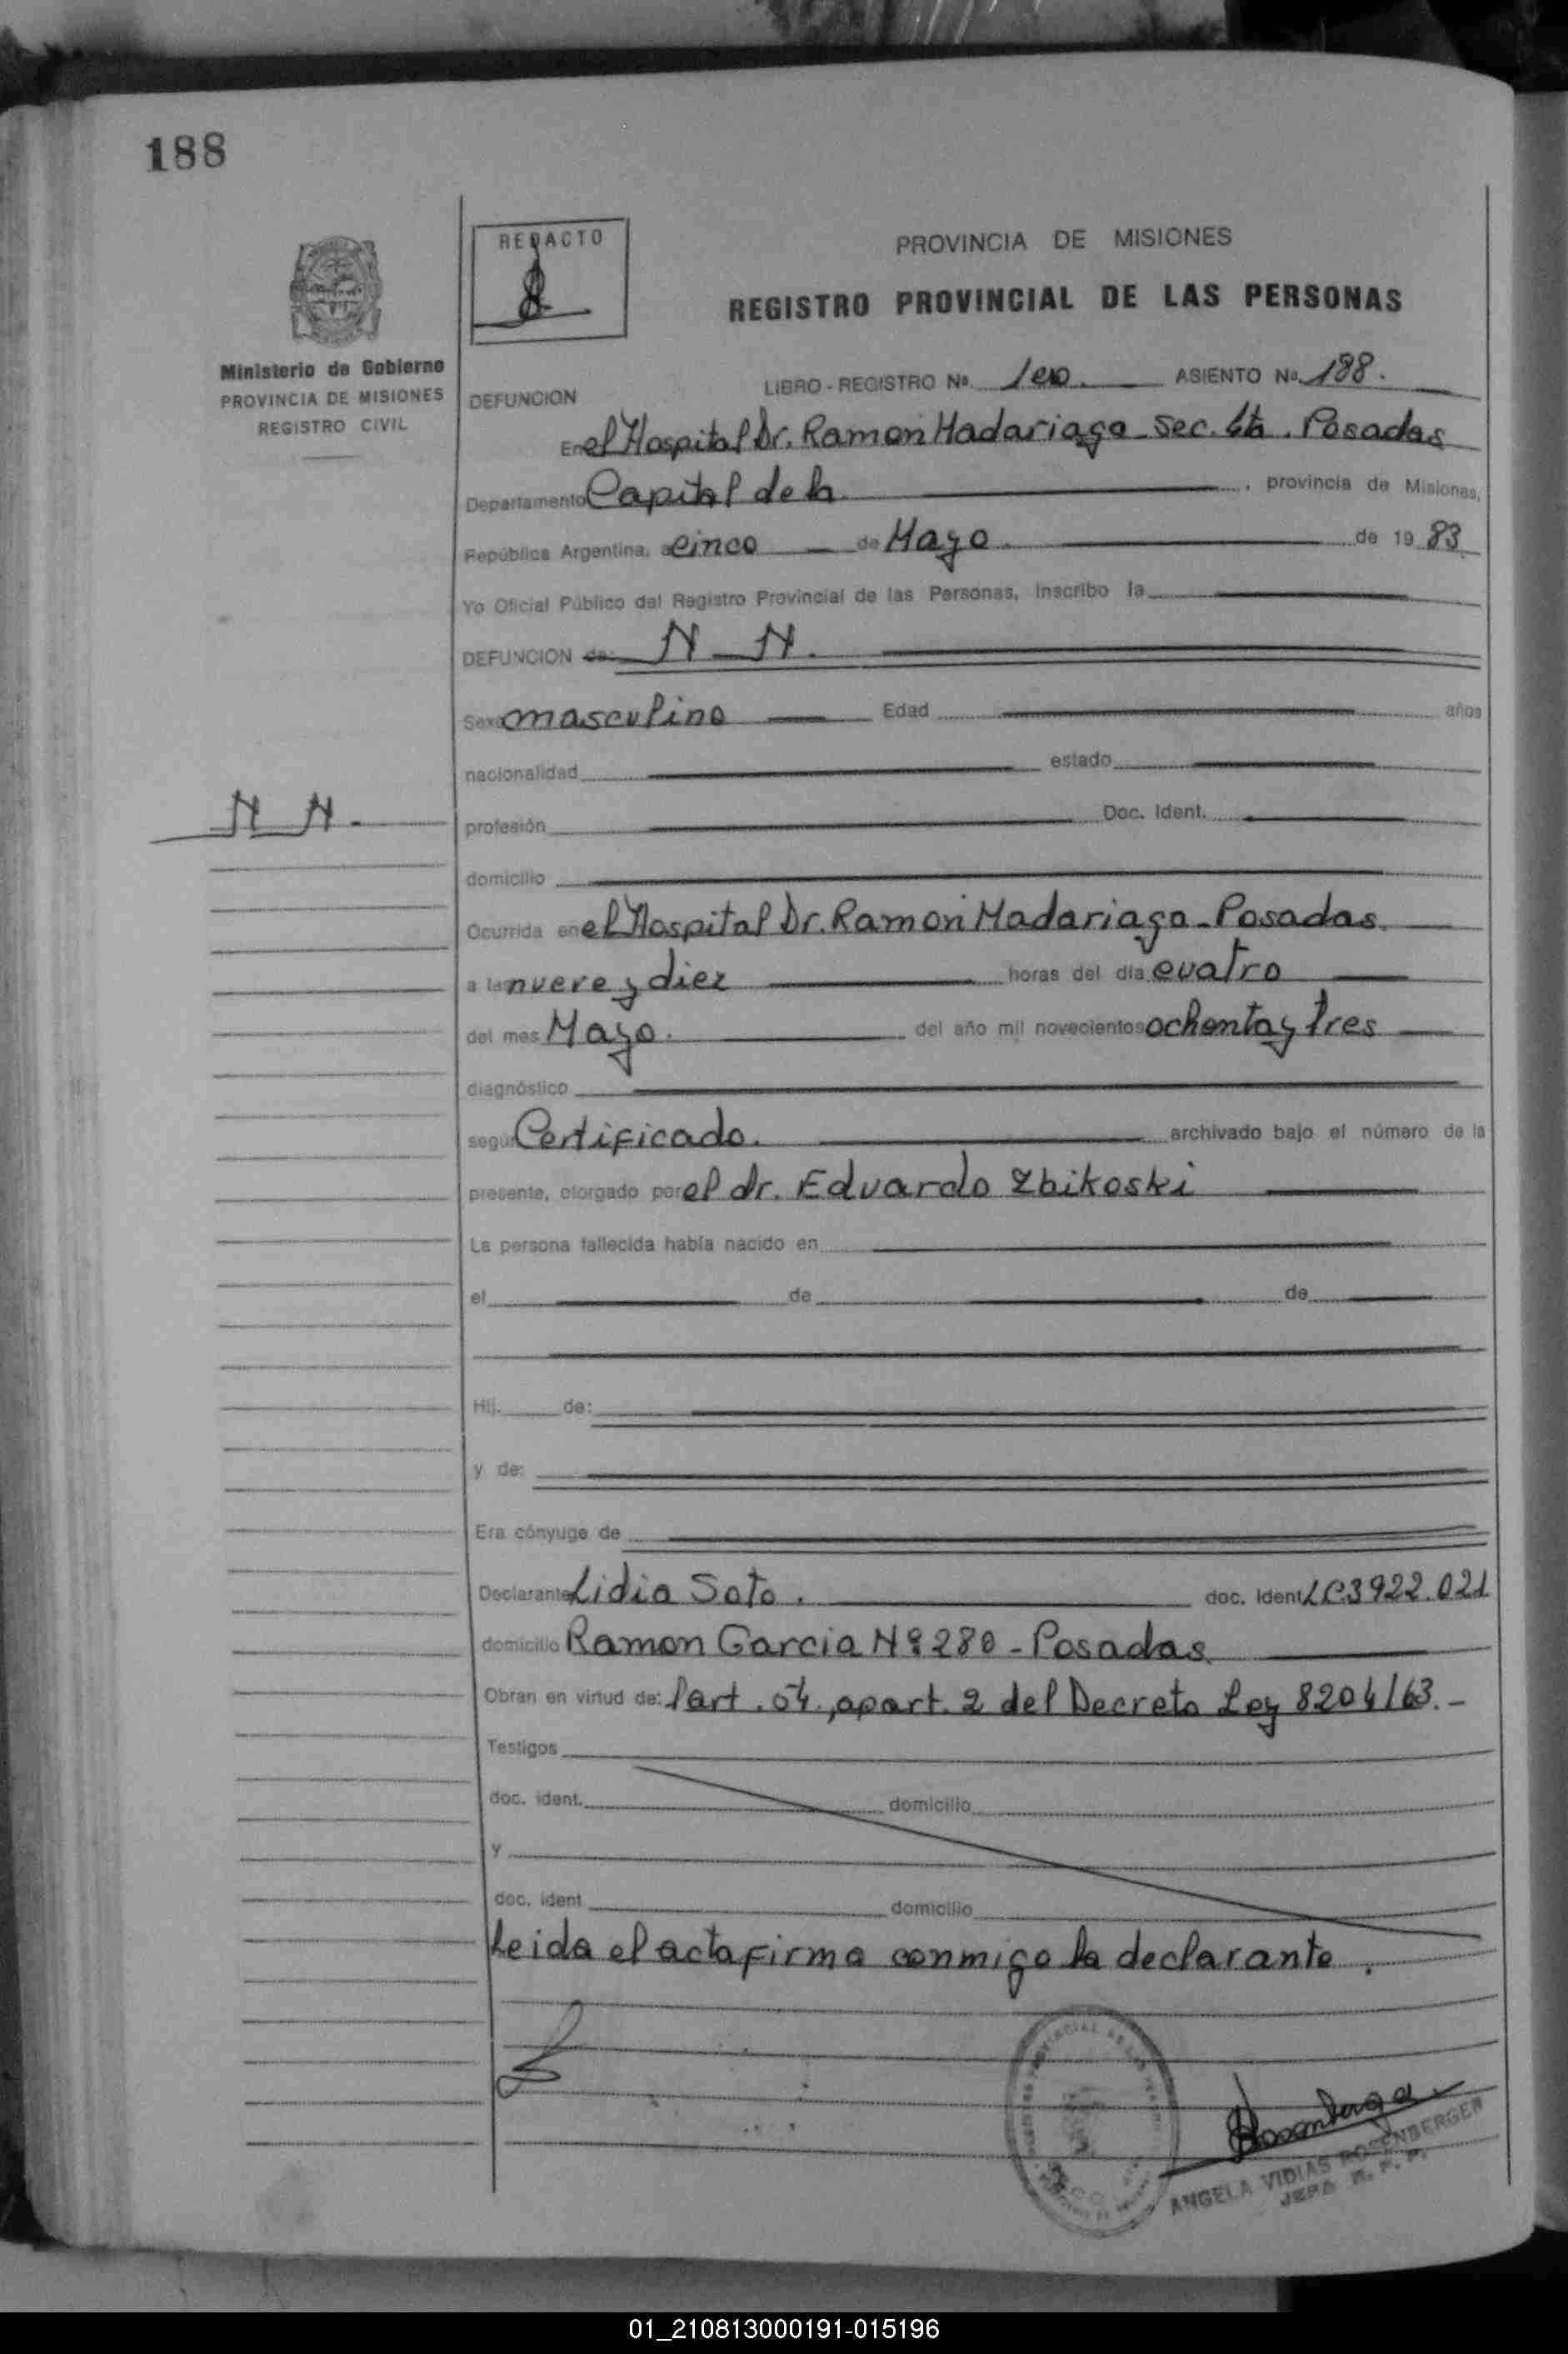 188
REDACTO
PROVINCIA DE MISIONES
REGISTRO PROVINCIAL DE LAS PERSONAS
Ministerio de Gobierno
PROVINCIA DE MISIONES
REGISTRO CIVIL
DEFUNCION LIBRO-REGISTRO Nº 1ero. ASIENTO Nº 188.
En el Hospital Dr. Ramon Madariaga - Sec. 4ta. Posadas
Departamento Capital de la , provincia de Misiones,
República Argentina, a cinco de Mayo. de 1983
Yo Oficial Público del Registro Provincial de las Personas, inscribo la
DEFUNCION de: N - N.
Sexo masculino Edad años
nacionalidad estado
N N.
profesión Doc. Ident.
domicilio
Ocurrida en el Hospital Dr. Ramon Madariaga - Posadas.
a la nueve y diez horas del día cuatro
del mes Mayo. del año mil novecientos ochenta y tres
diagnóstico
según Certificado. archivado bajo el número de la
presente, otorgado por el dr. Eduardo Zbikoski
La persona fallecida había nacido en
el de de
Hij. de:
y de:
Era cónyuge de
Declarante Lidia Soto. doc. Ident LC3922.021
domicilio Ramon Garcia Nº 280 - Posadas.
Obran en virtud de: l art. 54., apart. 2 del Decreto Ley 8204/63.-
Testigos
doc. ident. domicilio
y
doc. ident domicilio
Leida el acta firma conmigo la declarante.
ANGELA VIDIAS ROSENBERGER
JEFA R. P. P.
01_210813000191-015196